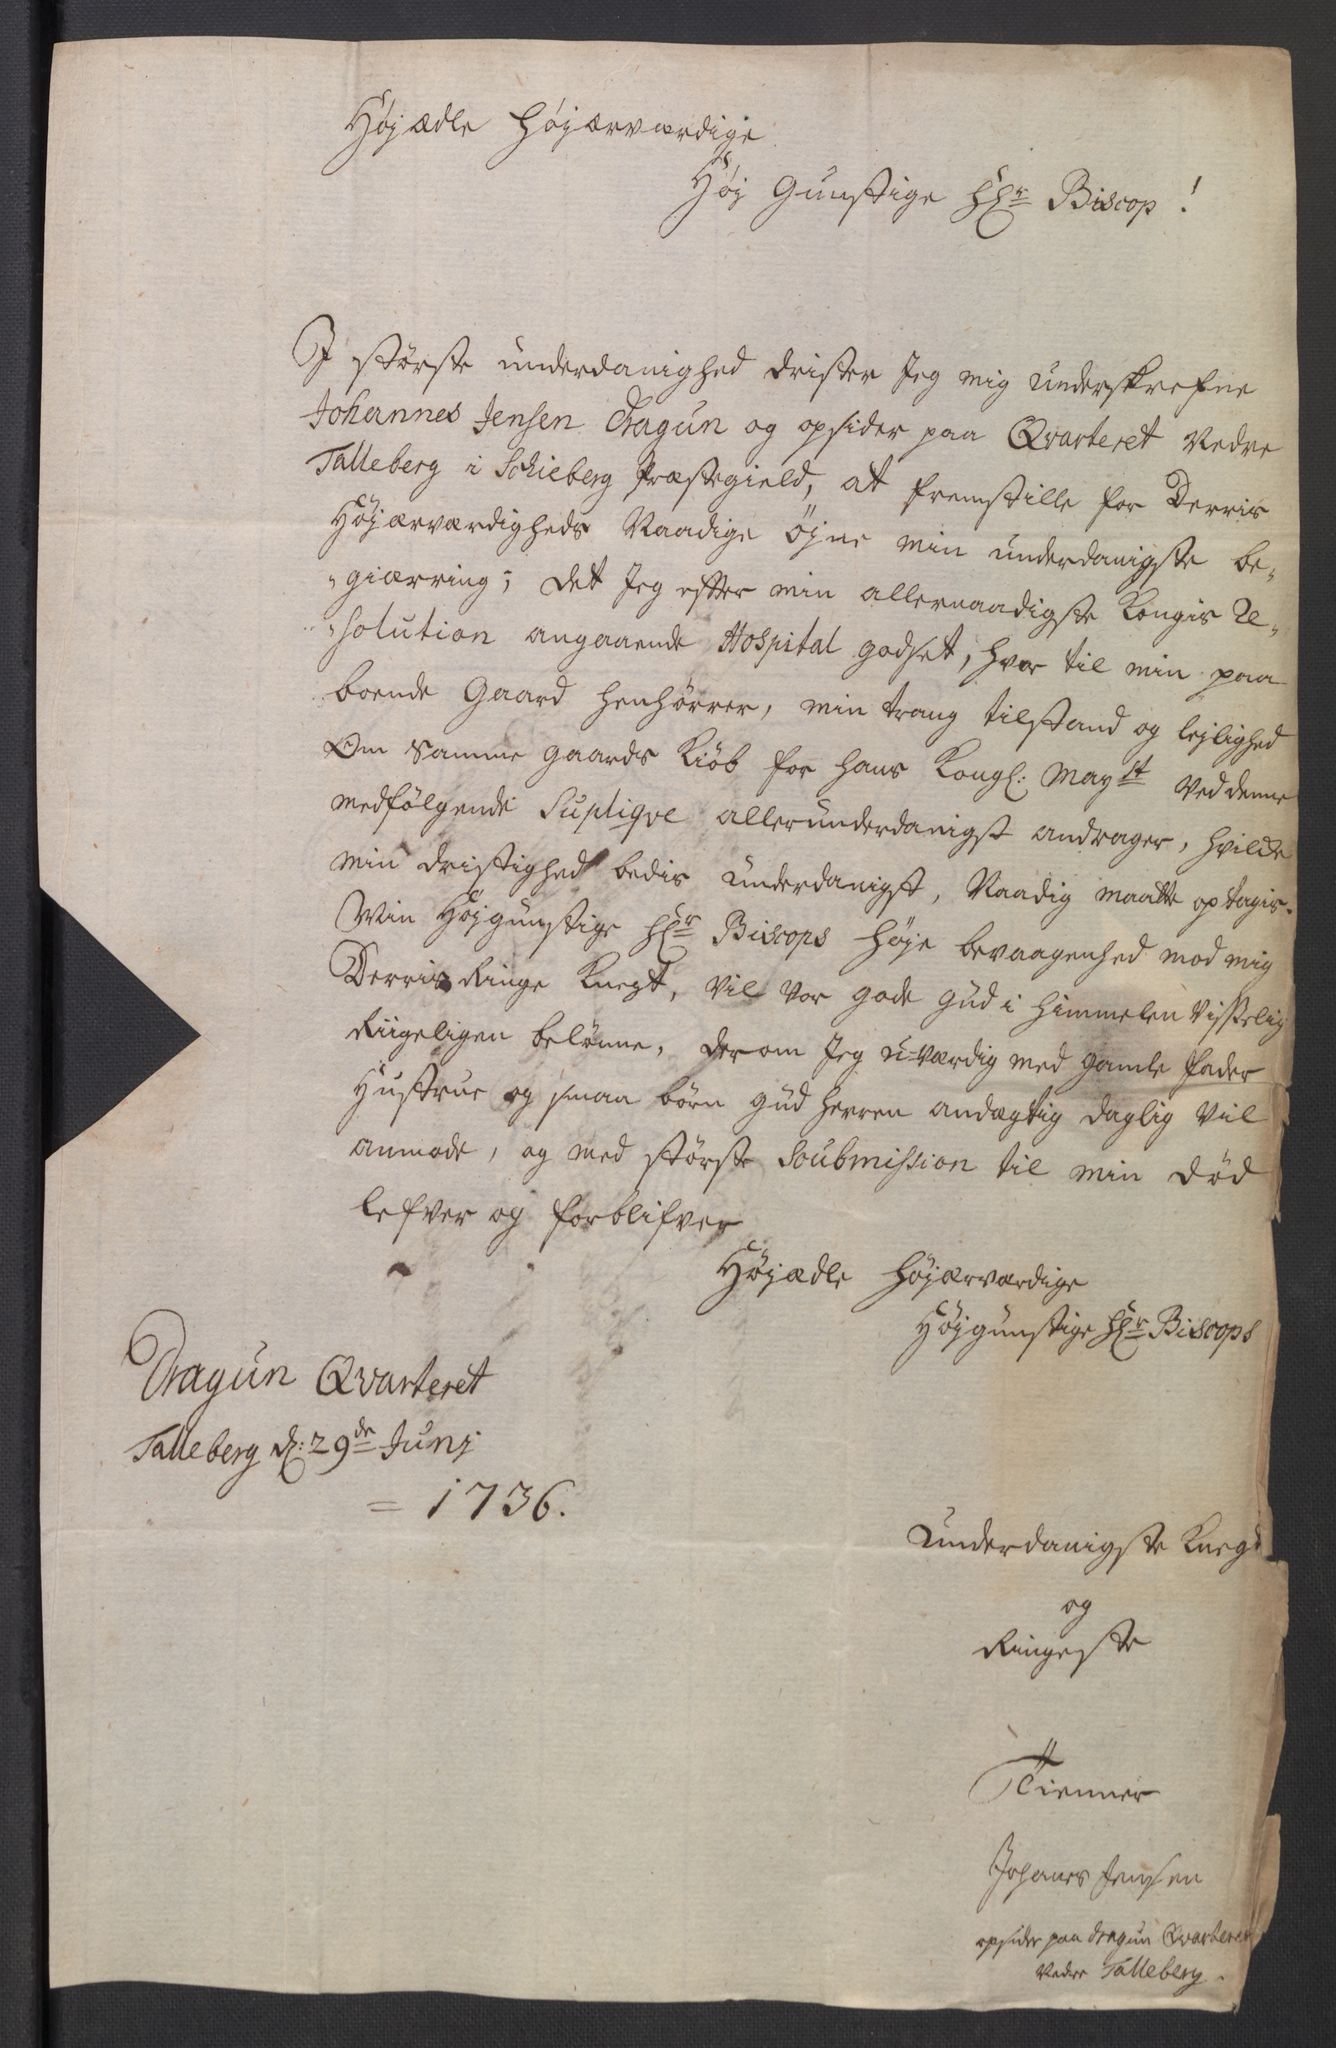 Højædle Højærværdige
Høj Gunstige HHr Biscop!
I største underdanighed drister Jeg mig underskrefne
Johannes Jensen Dragun og opsider paa Qvarteret Nedre
Talleberg i Schieberg Præstegield, at fremstille for Derris
Høyærværdigheds Naadige Öjne min underdanigste be„
„giærring; det Jeg efter min allernaadigste Kongis Re„
„solution angaaende Hospital godset, hvor til min paa
boende Gaard henhørrer, min trang tilstand og lejlighed
Om samme gaards Kiöb for hans Kongl: Mayst ved denne
medfølgende Supliqve allerunderdanigst andrager, hvilcke
min dristighed bedis underdanigst, Naadig maatte optagis.
Min Højgunstige HHr Biscops høje bevaagenhed mod mig
Derris Ringe Knegt, vil vor gode gud i himmelen visselig
Riigeligen belønne, derom Jeg u-værdig med gamle fader
Hustrue og smaa börn gud herren andægtig daglig vil
anmode, og med største Soubmission til min død
lefver og forblifver
Højædle Højærværdige
Højgunstige HHr Biscops
Dragun Qvarteret
Talleberg d: 29de Junj
= 1736.
Underdanigste Knegt
og
Ringeste
Tienner
Johanes Jensen
opsider paa dragun Qvarteret
Nedre Talleberg.